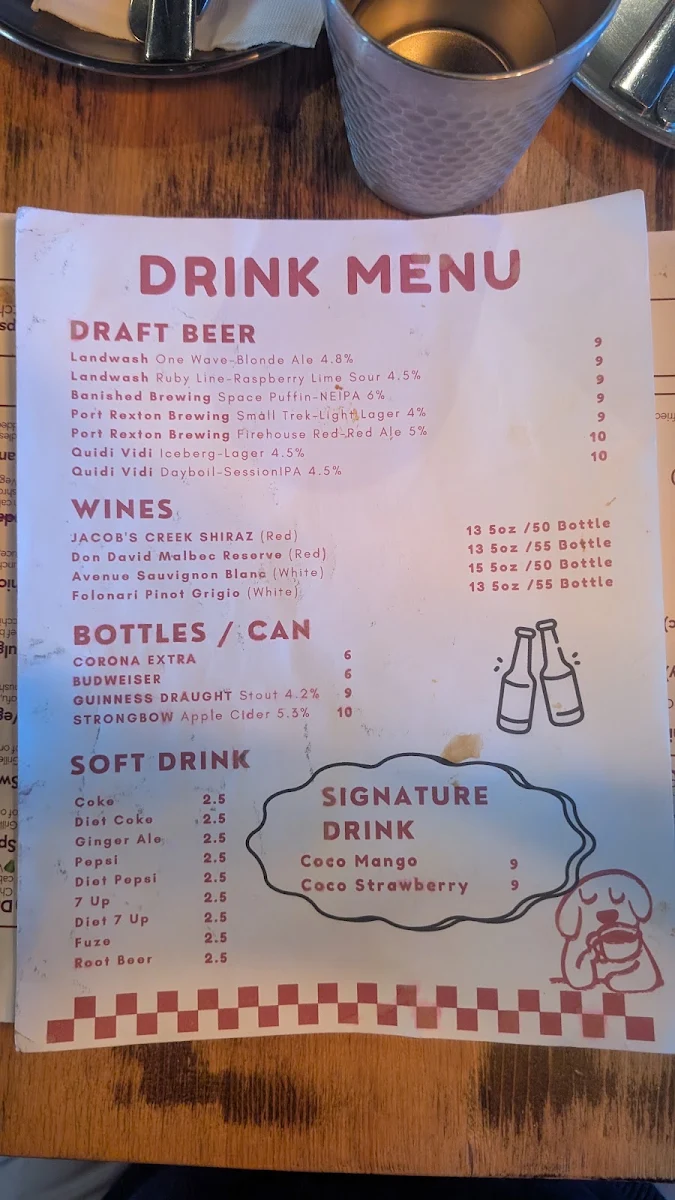 DRINK MENU
DRAFT BEER
Landwash One Wave-Blonde Ale 4.8% 9
Landwash Ruby Line-Raspberry Lime Sour 4.5% 9
Banished Brewing Space Puffin-NEIPA 6% 9
Port Rexton Brewing Small Trek-Light Lager 4% 9
Port Rexton Brewing Firehouse Red-Red Ale 5% 9
Quidi Vidi Iceberg-Lager 4.5% 10
Quidi Vidi Dayboil-SessionIPA 4.5% 10
WINES
JACOB'S CREEK SHIRAZ (Red) 13 5oz /50 Bottle
Don David Malbec Reserve (Red) 13 5oz /55 Bottle
Avenue Sauvignon Blanc (White) 15 5oz /50 Bottle
Folonari Pinot Grigio (White) 13 5oz /55 Bottle
BOTTLES / CAN
CORONA EXTRA 6
BUDWEISER 6
GUINNESS DRAUGHT Stout 4.2% 9
STRONGBOW Apple Cider 5.3% 10
SOFT DRINK
Coke 2.5
Diet Coke 2.5
Ginger Ale 2.5
Pepsi 2.5
Diet Pepsi 2.5
7 Up 2.5
Diet 7 Up 2.5
Fuze 2.5
Root Beer 2.5
SIGNATURE
DRINK
Coco Mango 9
Coco Strawberry 9